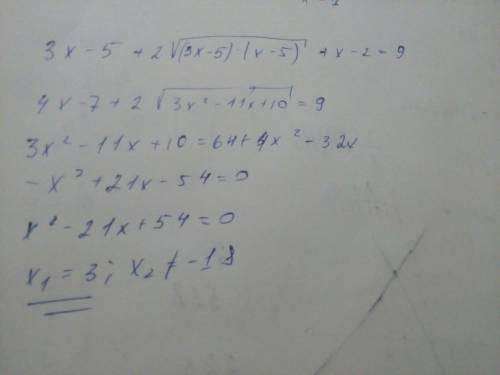 3x - 5 + 2√(3x-5)·(x-5) + x - 2 = 9
4x - 7 + 2√3x² - 11x + 10 = 9
3x² - 11x + 10 = 64 + 4x² - 32x
-x² + 21x - 54 = 0
x² - 21x + 54 = 0
x₁ = 3; x₂ ≠ -18